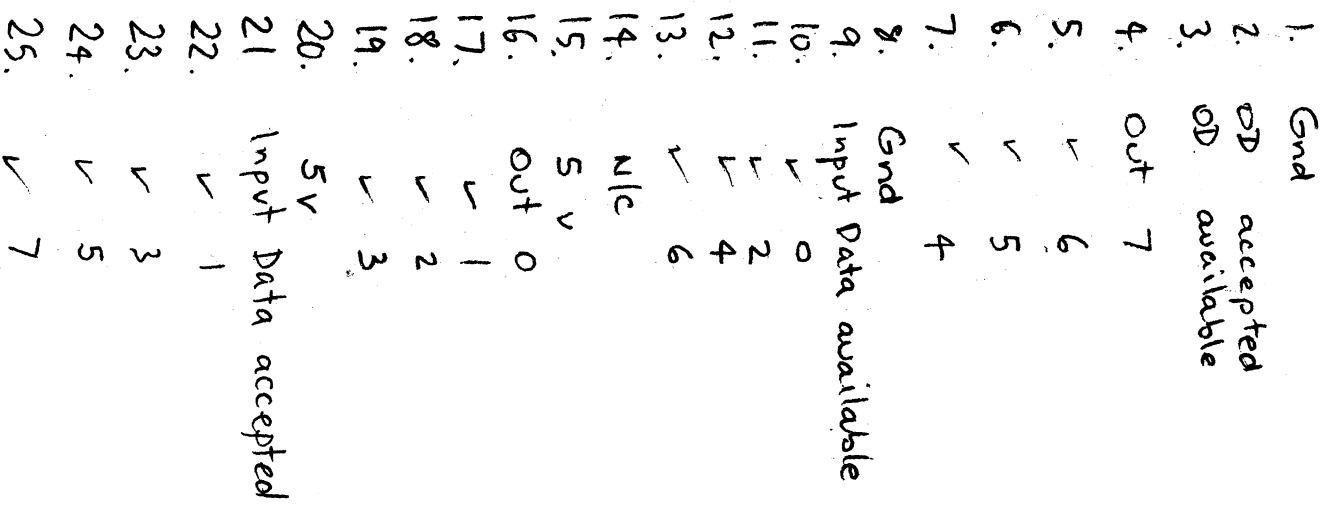 1. Gnd
2. OD accepted
3. OD available
4. Out 7
5. ✓ 6
6. ✓ 5
7. ✓ 4
8. Gnd
9. Input Data available
10. ✓ 0
11. ✓ 2
12. ✓ 4
13. ✓ 6
14. N/C
15. 5 v
16. Out 0
17. ✓ 1
18. ✓ 2
19. ✓ 3
20. 5v
21 Input Data accepted
22. ✓ 1
23. ✓ 3
24. ✓ 5
25. ✓ 7